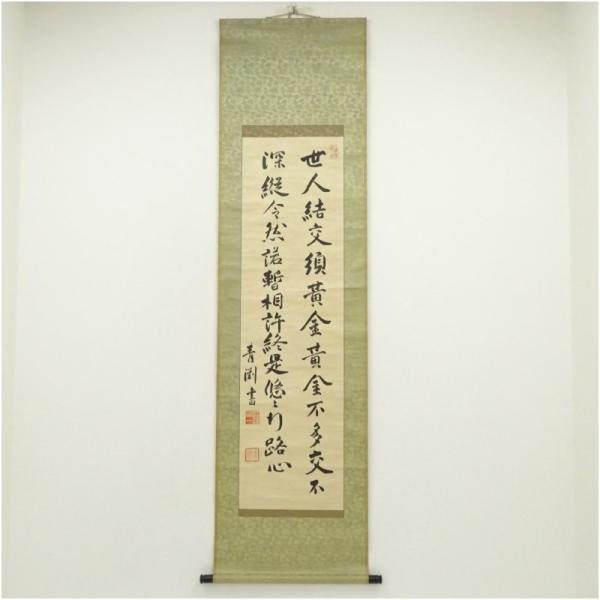 世人結交須黃金黃金不多交不
深縱令然諾暫相許終是悠々行路心
青渕書